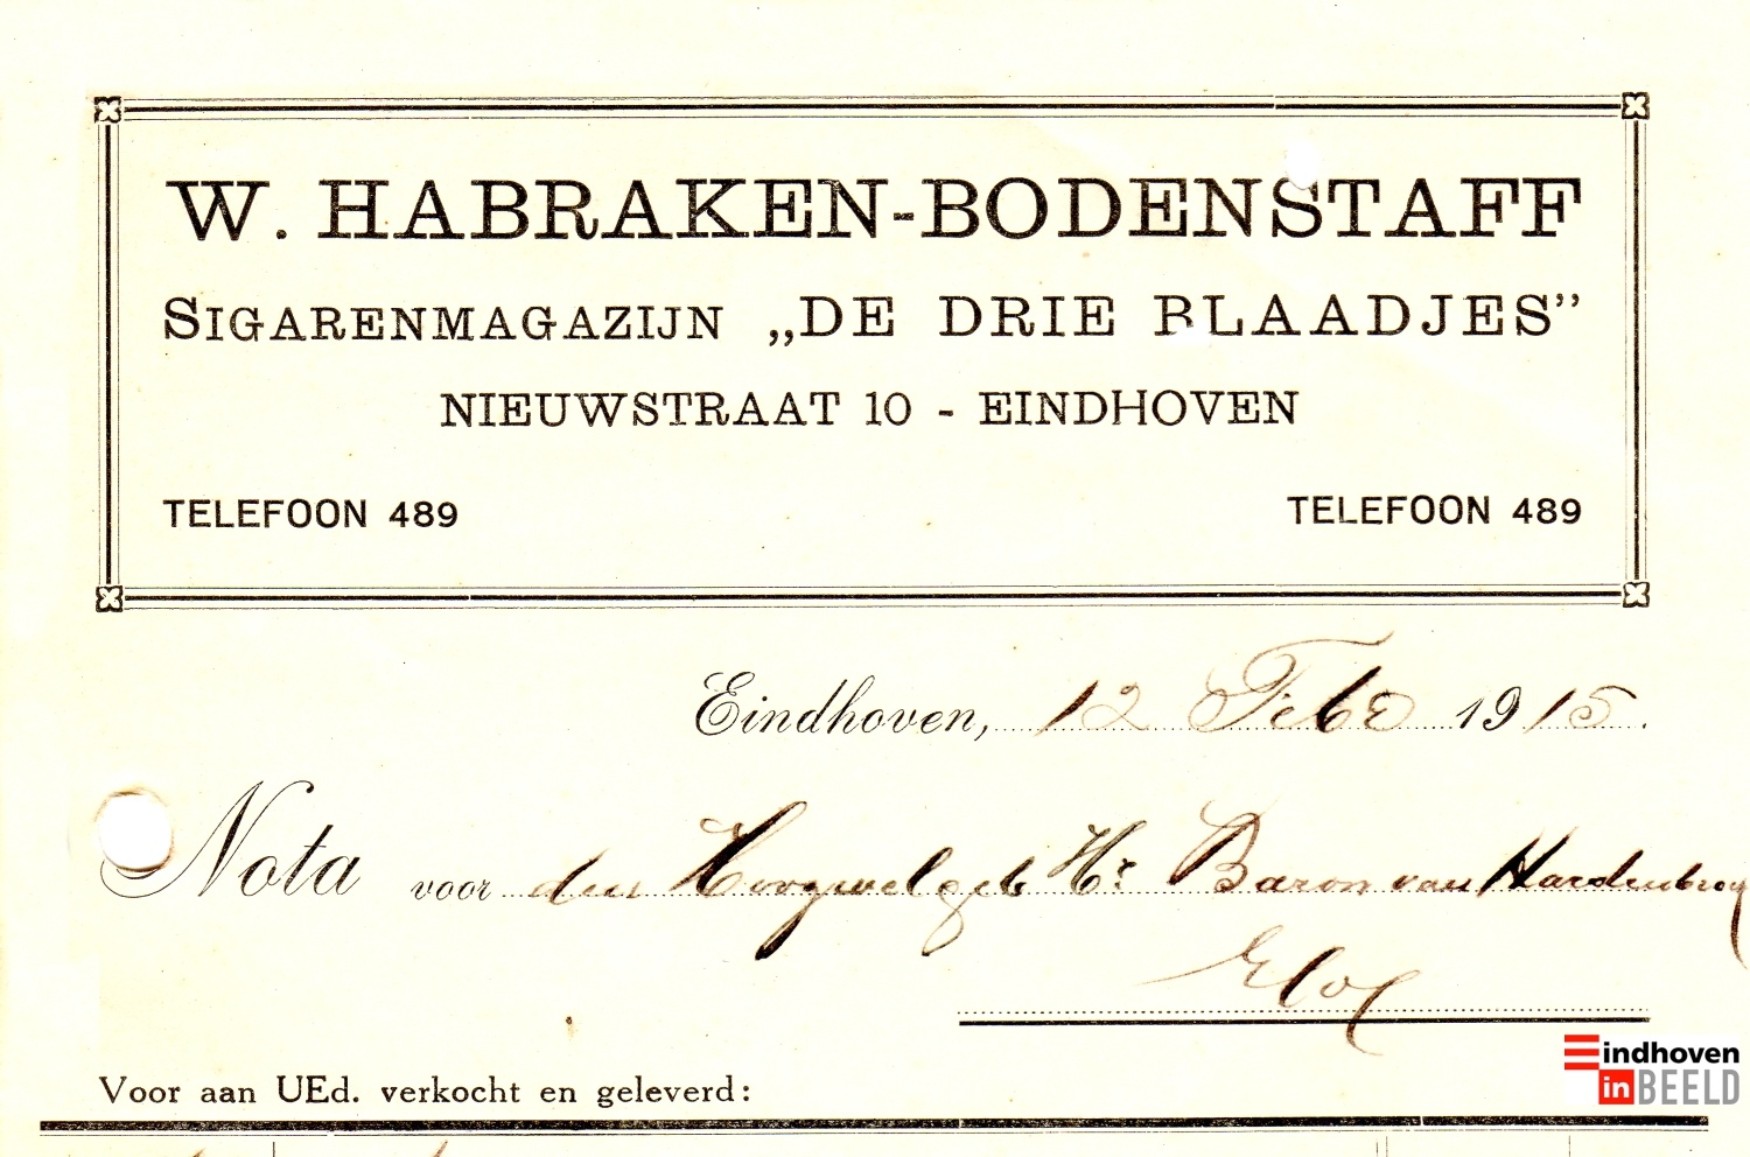 W. HABRAKEN-BODENSTAFF
SIGARENMAGAZIJN „DE DRIE BLAADJES”
NIEUWSTRAAT 10 - EINDHOVEN
TELEFOON 489 TELEFOON 489
Eindhoven, 12 Feb 1915.
Nota voor den Hoogwelgeb Hr Baron van Hardenbroek
Voor aan UEd. verkocht en geleverd:
Eindhoven
in BEELD